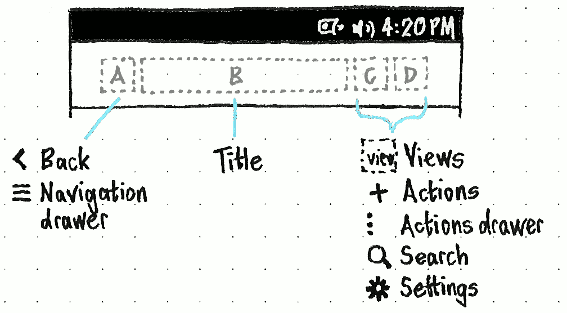 4:20PM
A B C D
< Back
Navigation
drawer
Title
view Views
+ Actions
Actions drawer
Search
Settings